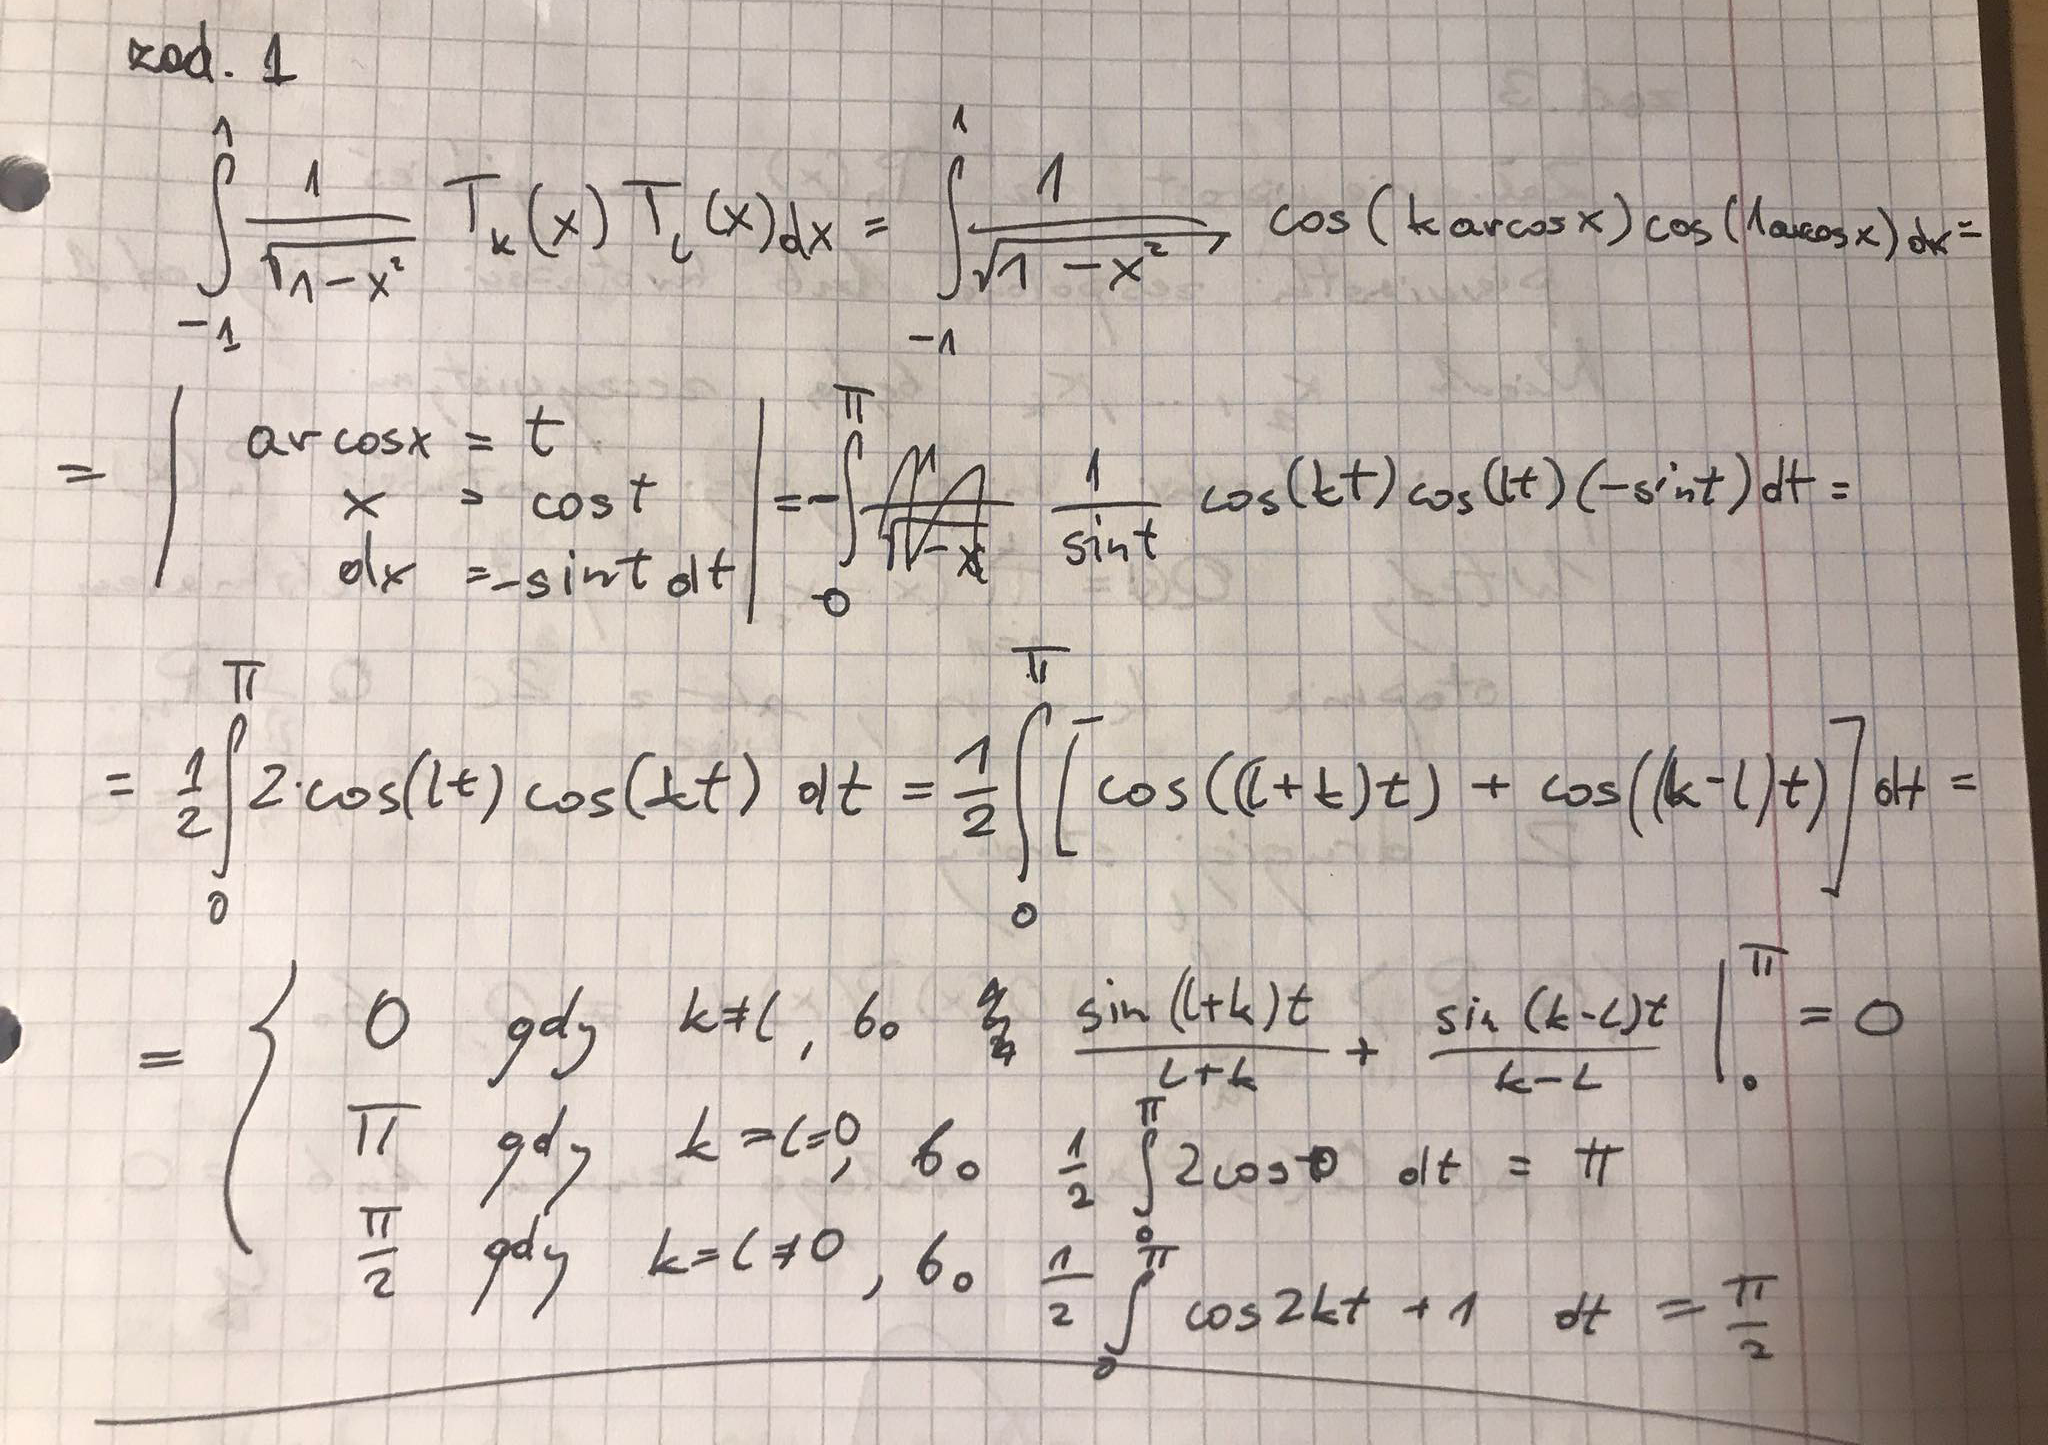 zad. 1
∫_{-1}^{1} 1/√(1-x²) T_k(x) T_l(x) dx = ∫_{-1}^{1} 1/√(1-x²) cos(k arcosx) cos(l arcosx) dx =
= | arcosx = t
x = cost
dx = -sint dt | = -∫_{0}^{π} 1/sint cos(kt) cos(lt) (-sint) dt =
= 1/2 ∫_{0}^{π} 2·cos(lt) cos(kt) dt = 1/2 ∫_{0}^{π} [cos((l+k)t) + cos((k-l)t)] dt =
= { 0 gdy k≠l, bo sin(l+k)t/(l+k) + sin(k-l)t/(k-l) |_{0}^{π} = 0
π gdy k=l=0, bo 1/2 ∫_{0}^{π} 2cos0 dt = π
π/2 gdy k=l≠0, bo 1/2 ∫_{0}^{π} cos2kt + 1 dt = π/2